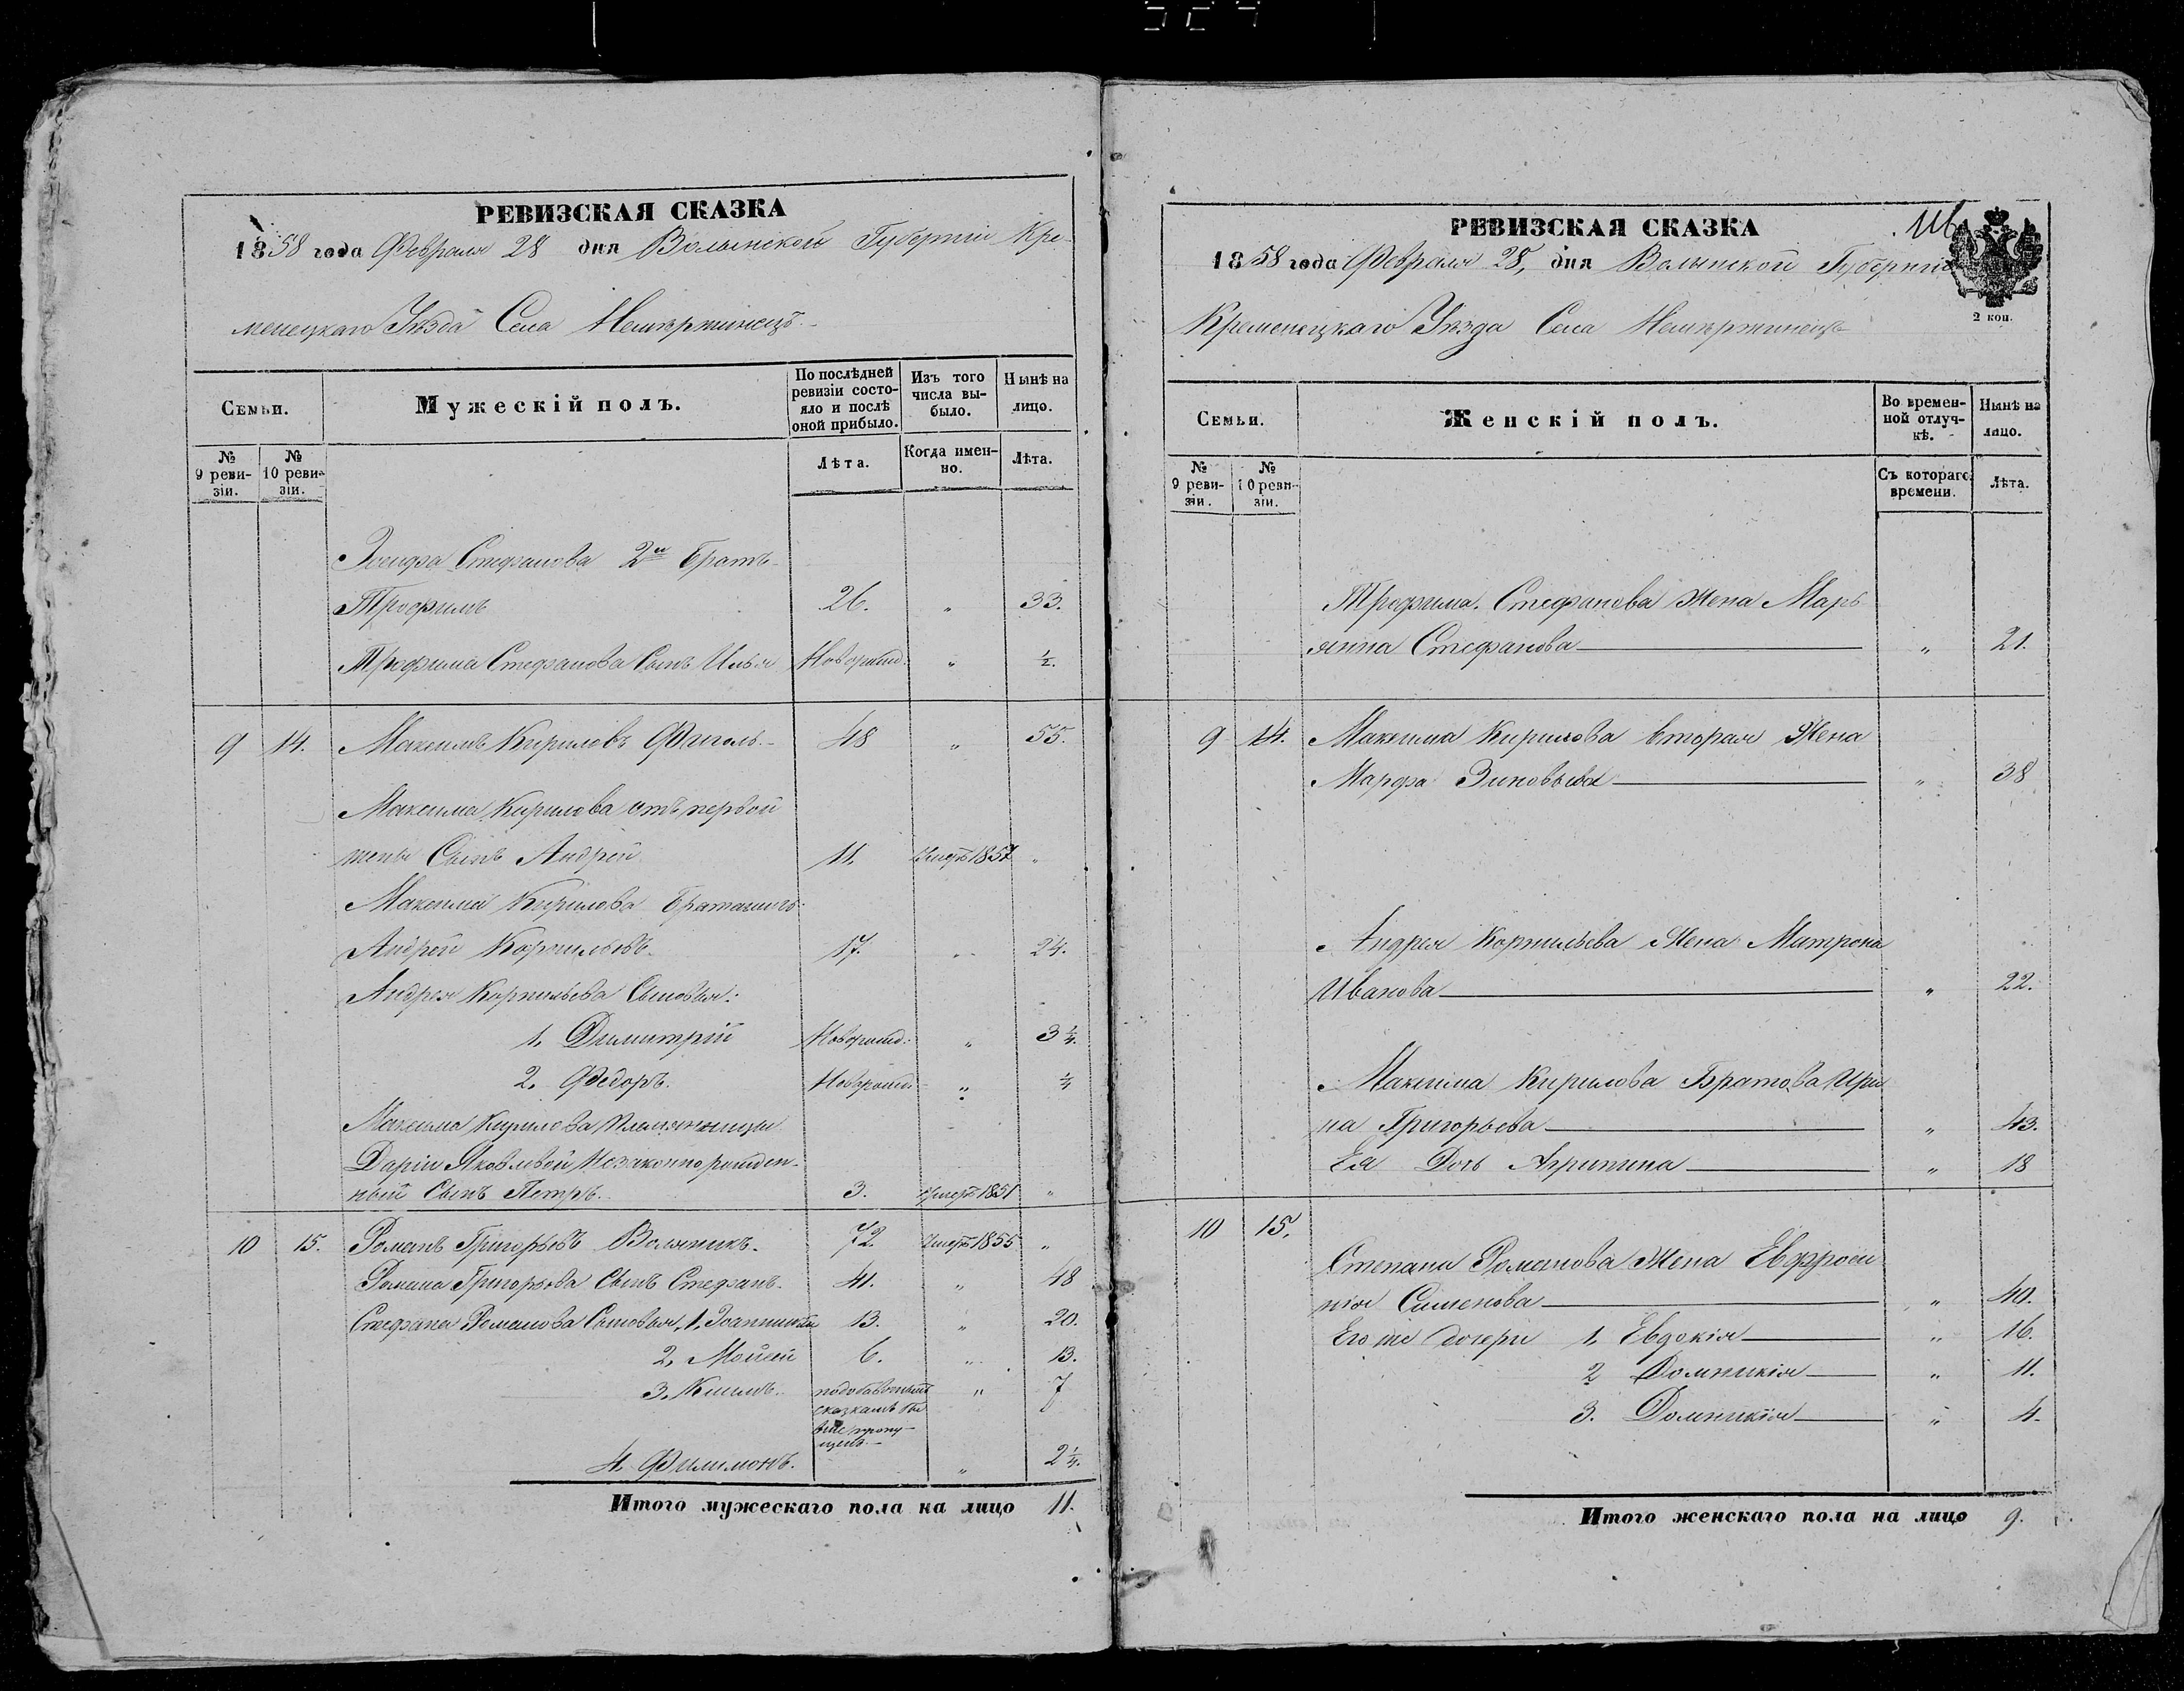 РЕВИЗСКАЯ СКАЗКА
1858 года Февраля 28 дня Волынской Губерніи Кре-
менецкаго Уѣзда Села
Семьи.
Мужескій полъ.
По послѣдней ревизіи состояло и послѣ оной прибыло.
Изъ того числа выбыло.
Нынѣ на лицо.
№ 9 ревизіи.
№ 10 ревизіи.
Лѣта.
Когда именно.
Лѣта.
Стефанова 2й Братъ
Трофимъ 26. " 33.
Трофима Стефанова Сынъ Илья Новорожд. " ½.
9 14. Максимъ Кириловъ 48 " 55.
Максима Кирилова отъ первой
жены Сынъ Андрей 11. Умеръ 1857 "
Максима Кирилова
Андрей Корнильевъ 17. " 24.
Андрея Корнильева Сыновья:
1. Димитрій Новорожд: " 3¼.
2. Федоръ. Новорожд. " ¼
Максима Кирилова племянницы
Даріи Яковлевой Незаконнорожден-
ный Сынъ Петръ. 3. Умеръ 1851 "
10 15. Романъ Григорьевъ 72. Умеръ 1855 "
Романа Григорьева Сынъ Стефанъ 41. " 48
Стефана Романова Сыновья, 1, Іоанникій 13. " 20.
2, Мойсей 6. " 13.
3. Климъ. " 7
сказкамъ
пропу-
щенъ
4. Филимонъ. " 2¼.
Итого мужескаго пола на лицо 11.
РЕВИЗСКАЯ СКАЗКА
1858 года Февраля 28, дня Волынской Губерніи
2 коп.
Кременецкаго Уѣзда Села
Семьи.
Женскій полъ.
Во временной отлучкѣ.
Нынѣ на лицо.
№ 9 ревизіи.
№ 10 ревизіи.
Съ котораго времени.
Лѣта.
Трофима Стефанова Жена Марь
янна Стефанова " 21.
9 14. Максима Кирилова вторая Жена
Марфа Зиновьева " 38
Андрея Корнильева Жена Матрона
Иванова " 22.
Максима Кирилова Братова Ири
на Григорьева " 43.
Ея Дочь Агрипина " 18
10 15.
Степана Романова Жена Евфроси
нія Сименова " 40.
Его же дочери 1, Евдокія " 16.
2 Домникія " 11.
3. Домникія " 4.
Итого женскаго пола на лицо 9.